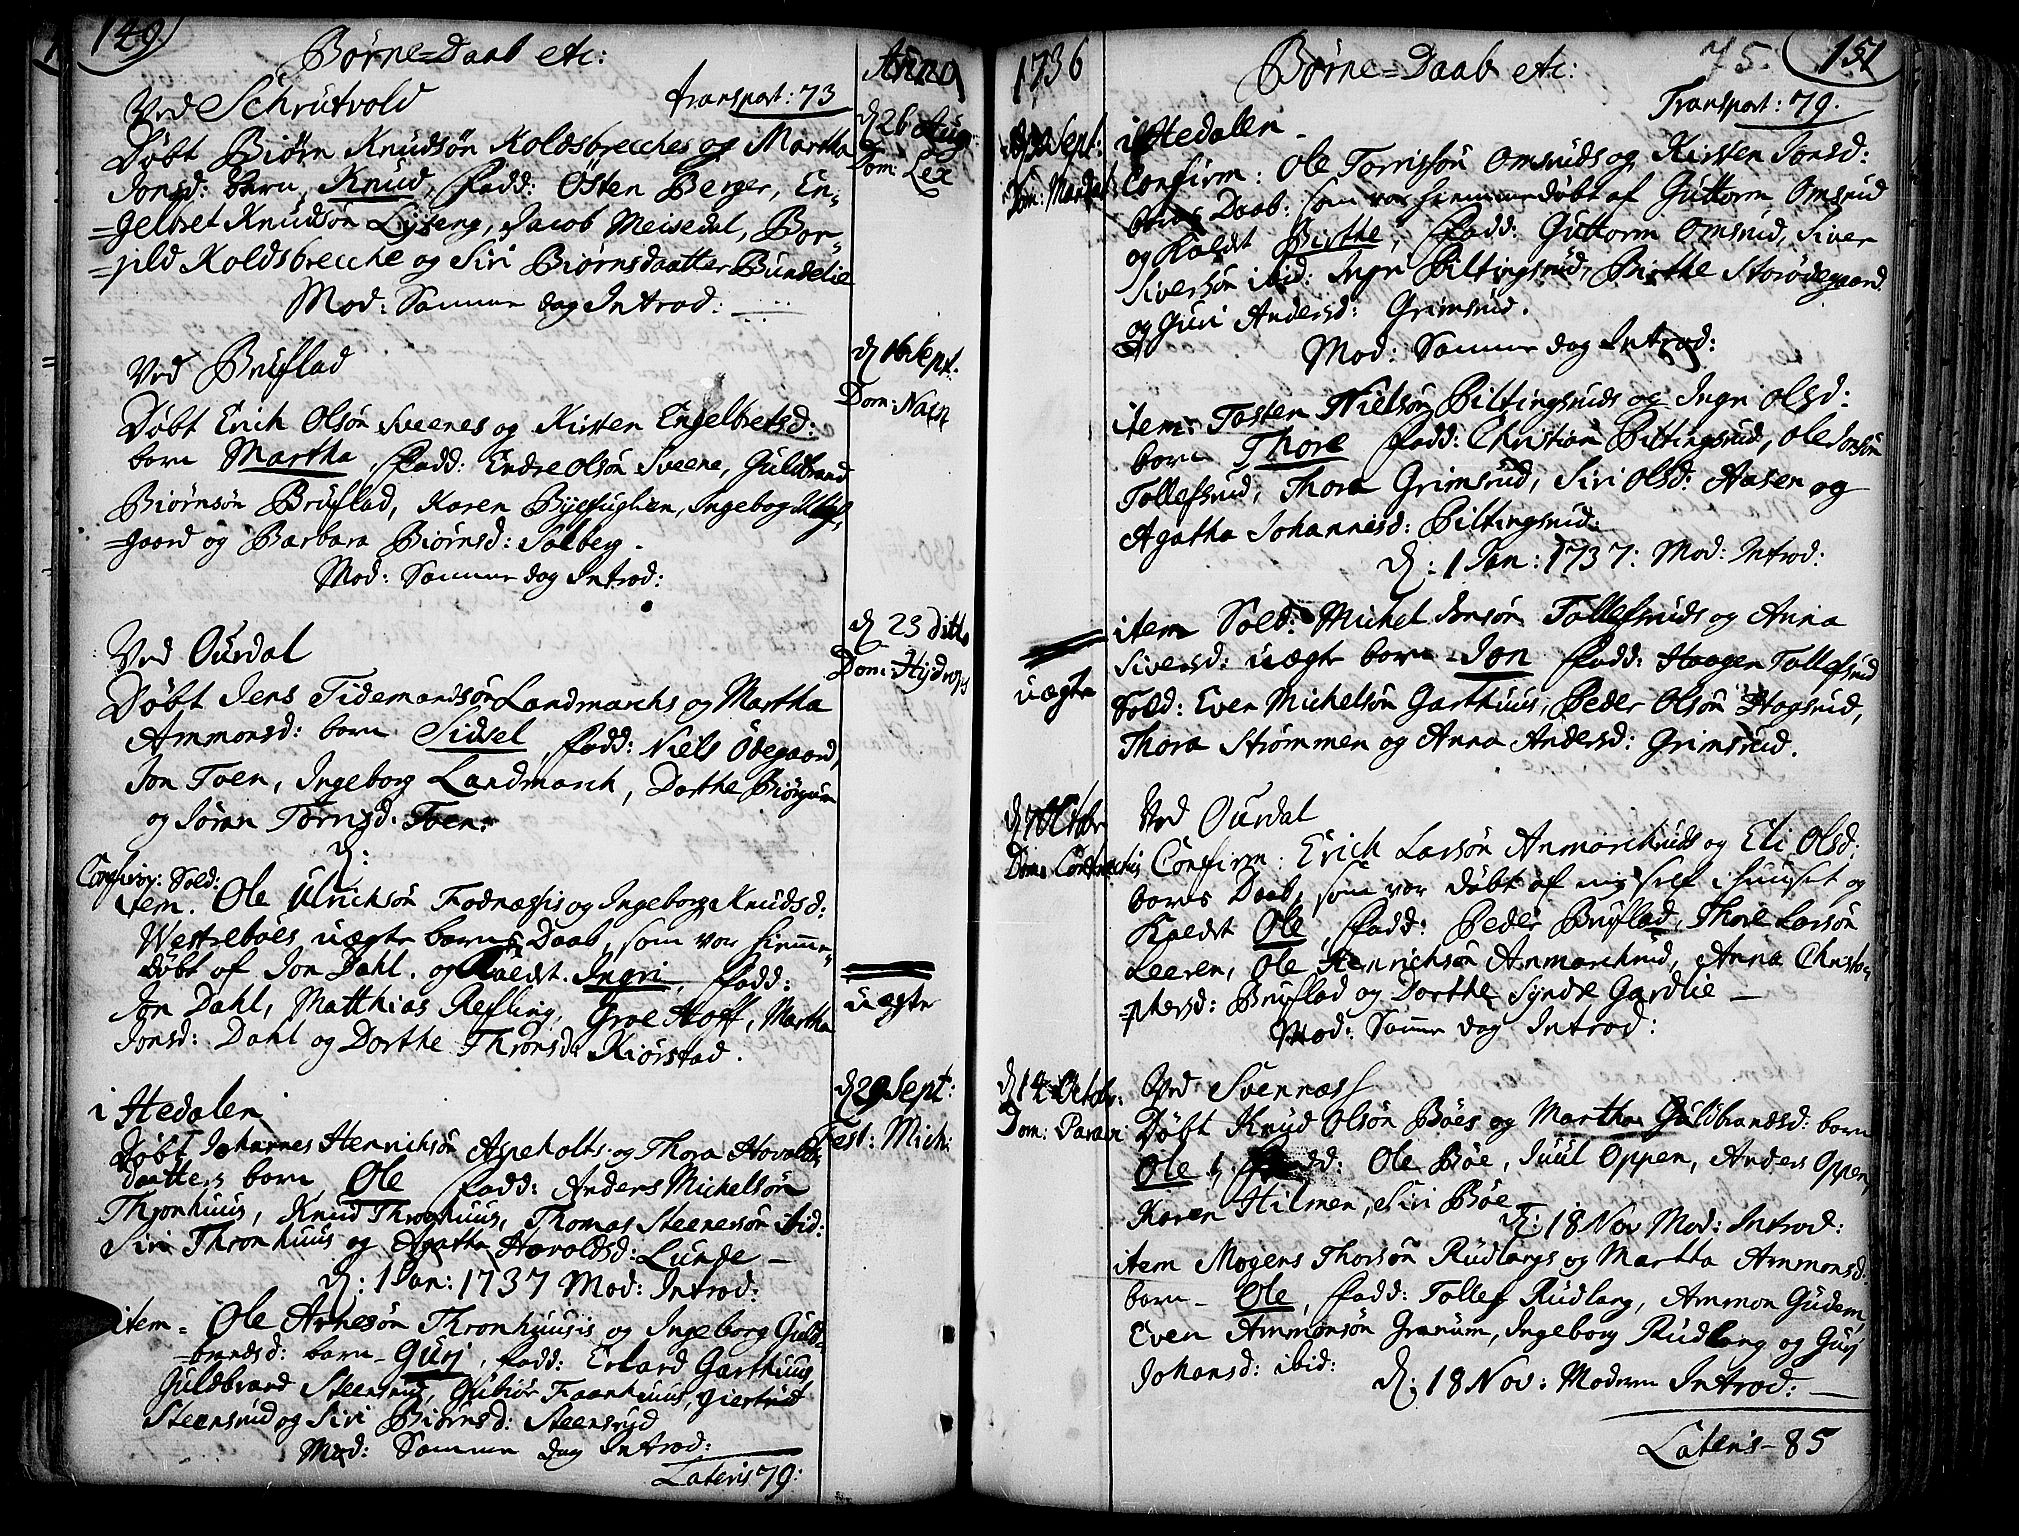 149.
Børne=Daab etc:
Anno
Ved Schrutvold
transport: 73
d 26 Aug:
Dom: Lex
Døbt Biørn Knudsøn Koldsbrecches og Martha
Jonsd: barn Knud, Fadd: Østen Berger, En-
=gelbret Knudsøn Lyberg, Jacob Meisedal, Bor-
=jild Koldsbrecche og Siri Biørnsdaatter Bundelie
Mod: Samme dag Introd:
Ved Bruflad
d 16 Sept:
Dom: Nain
Døbt Erich Olsøn Sveenes og Kirsten Engelbretsd:
barn Martha, Fadd: Endre Olsøn Sveene, Guldbrand
Biørnsøn Bruflad, Karen Byesughen, Ingebog
=gaard og Barbara Biørnsd: Solbeg.
Mod: Samme dag Introd:
Ved Ourdal
d 23 ditto
Dom: Hydrops
Døbt Jens Tidemandsøn Landmarchs og Martha
Ammonsd: barn Sidsel, Fadd: Niels Ødegaard,
Jon Toen, Ingeborg Landmarch, Dorthe Biørgum
og Jøran Tornisd: Toen.
d:
Confirm: Sold:
item. Ole Ulrichsøn Fodnæssis og Ingeborg Knudsd:
Westreboes uægte barns Daab, som var hiemme-
døbt af Jon Dahl. og Kaldt. Ingri, Fadd:
uægte
Jon Dahl, Matthias Refling, Groe Hoff, Martha
Jonsd: Dahl og Dorthe Thronsd: Kiørstad.
i Hedalen
d 29 Sept:
Fest: Mich:
Døbt Johannes Henrichsøn Aspeholts og Thora Hovolds
daatters barn Ole Fadd: Anders Michelsøn
Thronhuus, Knud Thronhuus, Thomas Steenersøn ibid:
Siri Thronhuus og Agatha Haroldsd: Lunde —
d: 1 Jan: 1737 Mod: Introd:
item = Ole Arnesøn Thronhuusis og Ingeborg Guld-
=brandsd: barn - Gurj, Fadd: Erland Garthuus
Guldbrand Steensrud, Gubiør Faanhuus, giertrud
Steensrud og Siri Biørnsd: Steensryd
Mod: Samme dag Introd:
Lateris 79:
1736
Børne=Daab etc:
75.
151
Transport: 79.
Sept:
Dom:
i Hedalen
Confirm: Ole Torrissøn Omsruds og Kirsten Jonsd:
barns Daab: som var hiemmedøbt af Guttorm Omsrud
og Kaldt Birthe, Fadd: Guttorm Omsrud, Siver
Siversøn ibid: Ingri Piltingsrud, Birthe Storødegaard
og Guri Andersd: Grimsrud.
Mod: Samme dag Introd:
item: Tosten Nielsøn Piltingsruds og Ingri Olsd:
barn Thore Fadd: Christian Piltingsrud, Ole Jonsøn
Tollefsrud, Thora Grimsrud, Siri Olsd: Aasen og
Agatha Johannisd: Piltingsrud:
d: 1 Jan: 1737: Mod: Introd:
item Sold: Michel Jonsøn Tollefsruds og Anna
uægte
Siversd: uægte barn - Jon Fadd: Haagen Tollefsrud
Sold: Even Michelsøn Garthuus, Peder Olsøn Hagsrud,
Thora Strømmen og Anna Andersd: Grimsrud.
d 7 October
Dom: Confractus
Ved Ourdal
Confirm: Erich Larsøn Anmarchruds og Eli Olsd:
barns Daab, som var døbt af mig self i huuset og
Kaldt Ole, Fadd: Peder Bruflad, Thore Larsøn
Leeren, Ole Henrichsøn Anmarchrud, Anna Christo-
=phersd: Bruflad og Dorthe Syndre Gardlie —
Mod: Samme dag Introd:
d 14 October:
Dom: Parasc
Ved Svennæss
Døbt Knud Olsøn Bøes og Martha Guldbrandsd: barn
Ole, Fadd: Ole Bøe, Juul Oppen, Anders Oppen,
Karen Hilmen, Siri Bøe
d: 18 Nov Mod: Introd:
item Mogens Thorsøn Rudlangs og Martha Ammonsd:
barn - Ole, Fadd: Tollef Rudlang, Ammon Gudem
Even Ammonsøn Granum, Ingeborg Rudlang og Gurj
Johansd: ibid:
d: 18 Nov: Moderen Introd: —
Lateris - 85